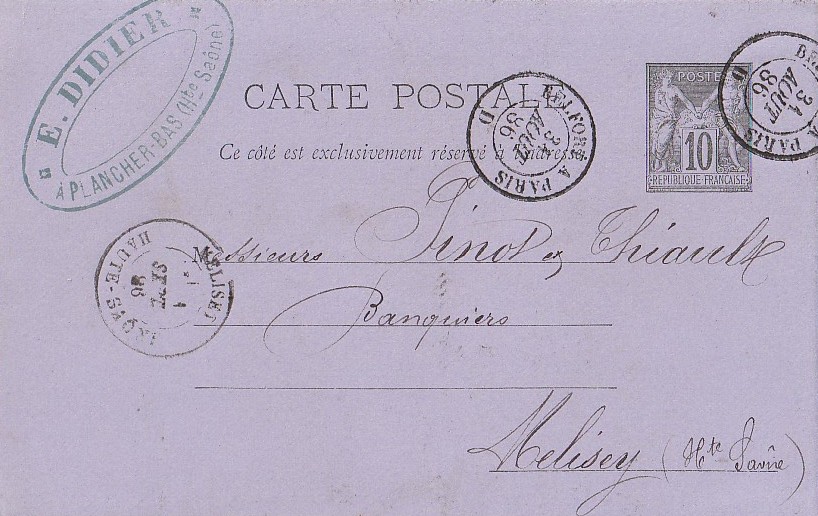 E. DIDIER
À PLANCHER-BAS (Hte Saône)
CARTE POSTALE
Ce côté est exclusivement réservé à l'adresse
BELFORT A PARIS
31
AOUT
86
POSTE
10
REPUBLIQUE FRANÇAISE
BEL
A PARIS
31
AOUT
86
MELISEY
1
SEPT
86
HAUTE-SAONE
Messieurs Pinot et Thiault
Banquiers
Melisey (Hte Saône)